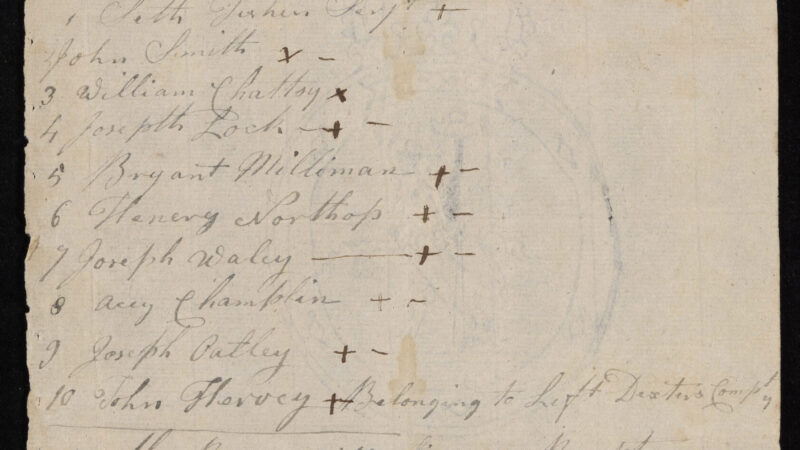 1 Seth Serjt + 
John Smith x -
3 William Chattoy x
4 Josepth Lock - + -
5 Bryant Milliman + -
6 Henery Northop + -
7 Joseph Waley — + -
8 acey Champlin + -
9 Joseph Oatley + -
10 John Hervey + Belonging to Left Dexters Compy